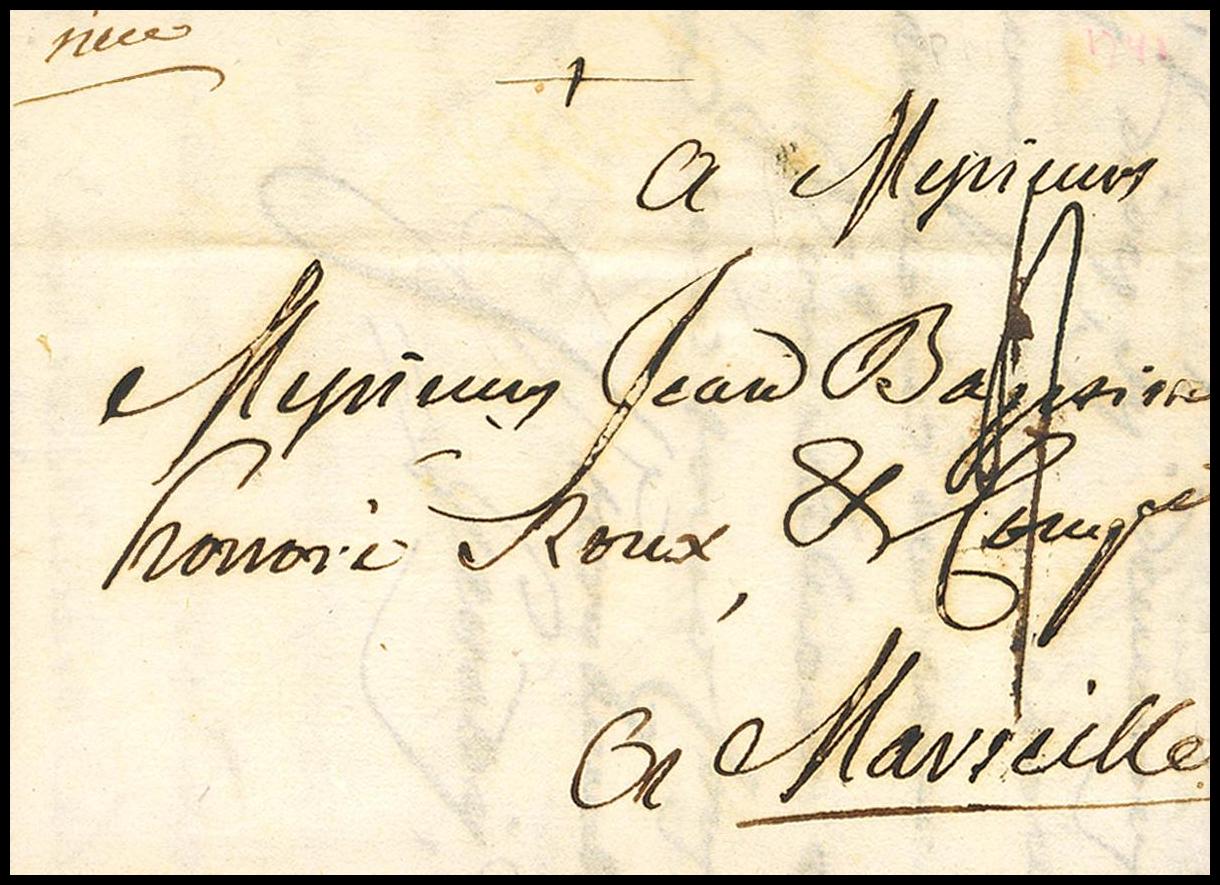 nice
A Messieurs
Messieurs Jean Baptiste
honoré Roux, & Compe
A Marseille